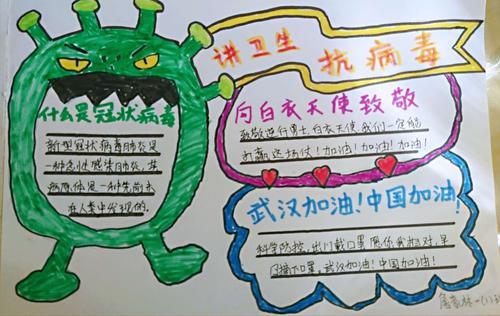 讲卫生 抗病毒
什么是冠状病毒
新型冠状病毒肺炎是
一种急性感染肺炎,其
病原体是一种先前未
在人类中发现的.
向白衣天使致敬
致敬逆行勇士,白衣天使,我们一定能
打赢这场仗!加油!加油!加油!
武汉加油!中国加油!
科学防控,出门戴口罩,愿你我相对,早
日摘下口罩。武汉加油!中国加油!